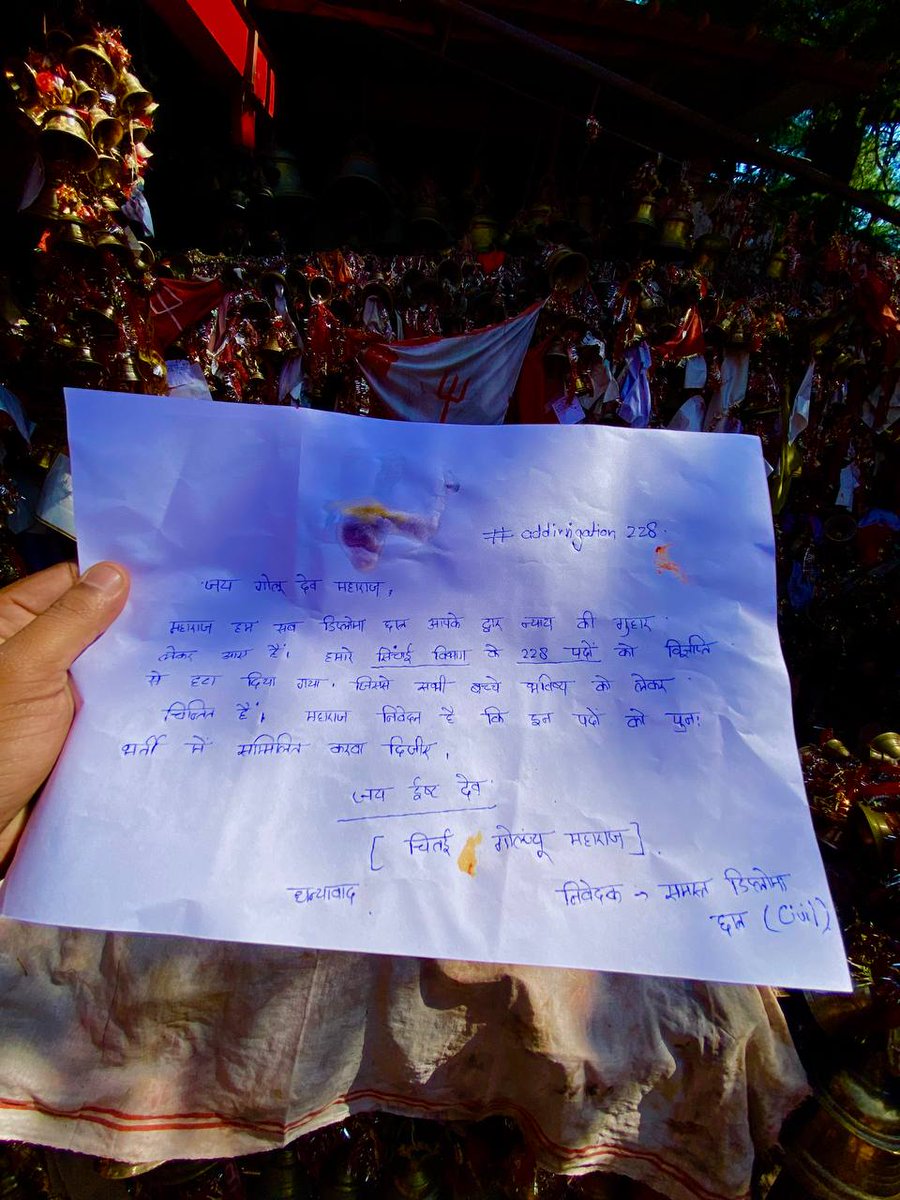 # addirrigation 228.
जय गोलू देव महाराज,
महाराज हम सब डिप्लोमा छात्र आपके द्वार न्याय की गुहार
लेकर आए हैं। हमारे सिंचाई विभाग के 228 पदों को विज्ञप्ति
से हटा दिया गया, जिससे सभी बच्चे भविष्य को लेकर
चिन्तित हैं। महाराज निवेदन है कि इन पदों को पुनः
भर्ती में सम्मिलित करवा दिजीए,
जय ईष्ट देव
[ चितई गोल्ज्यू महाराज ].
धन्यावाद.
निवेदक → समस्त डिप्लोमा
छात्र (Civil)